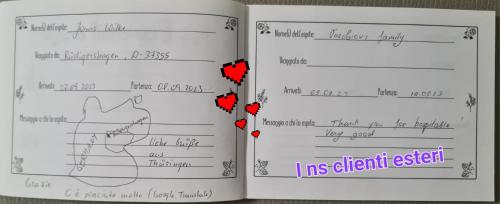 Nome(i) dell'ospite: Jonas Wilke
Viaggiato da: Rüdigershagen, D-37355
Arrivato: 07.09.2023 Partenza: 08.09.2023
Messaggio a chi la ospita:
GERMANY
Rüdigershagen
liebe Grüße
aus
Thüringen
Grazie
C'è piaciuto molto (Google Translate)
Nome(i) dell'ospite: family
Viaggiato da:
Arrivato: Partenza:
Messaggio a chi la ospita: Thank you for hospitable!
Very good
I ns clienti esteri